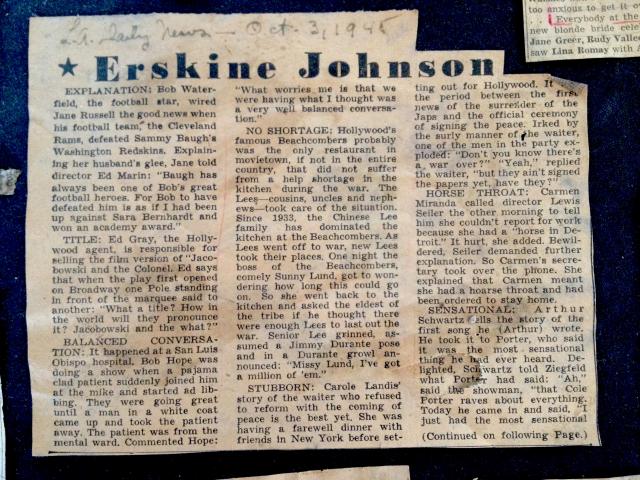 L.A. Daily News — Oct. 3, 1945
★ Erskine Johnson
EXPLANATION: Bob Water-
field, the football star, wired
Jane Russell the good news when
his football team, the Cleveland
Rams, defeated Sammy Baugh's
Washington Redskins. Explain-
ing her husband's glee, Jane told
director Ed Marin: "Baugh has
always been one of Bob's great
football heroes. For Bob to have
defeated him is as if I had been
up against Sara Bernhardt and
won an academy award."
TITLE: Ed Gray, the Holly-
wood agent, is responsible for
selling the film version of "Jaco-
bowski and the Colonel. Ed says
that when the play first opened
on Broadway one Pole standing
in front of the marquee said to
another: "What a title? How in
the world will they pronounce
it? Jacobowski and the what?"
BALANCED CONVERSA-
TION: It happened at a San Luis
Obispo hospital. Bob Hope was
doing a show when a pajama
clad patient suddenly joined him
at the mike and started ad lib-
bing. They were going great
until a man in a white coat
came up and took the patient
away. The patient was from the
mental ward. Commented Hope:
"What worries me is that we
were having what I thought was
a very well balanced conversa-
tion."
NO SHORTAGE: Hollywood's
famous Beachcombers probably
was the only restaurant in
movietown, if not in the entire
country, that did not suffer
from a help shortage in the
kitchen during the war. The
Lees—cousins, uncles and neph-
ews—took care of the situation.
Since 1933, the Chinese Lee
family has dominated the
kitchen at the Beachcombers. As
Lees went off to war, new Lees
took their places. One night the
boss of the Beachcombers,
comely Sunny Lund, got to won-
dering how long this could go
on. So she went back to the
kitchen and asked the eldest of
the tribe if he thought there
were enough Lees to last out the
war. Senior Lee grinned, as-
sumed a Jimmy Durante pose
and in a Durante growl an-
nounced: "Missy Lund, I've got
a million of 'em."
STUBBORN: Carole Landis'
story of the waiter who refused
to reform with the coming of
peace is the best yet. She was
having a farewell dinner with
friends in New York before set-
ting out for Hollywood. It
the period between the first
news of the surrender of the
Japs and the official ceremony
of signing the peace. Irked by
the surly manner of the waiter,
one of the men in the party ex-
ploded: "Don't you know there's
a war over?" "Yeah," replied
the waiter, "but they ain't signed
the papers yet, have they?"
HORSE THROAT: Carmen
Miranda called director Lewis
Seiler the other morning to tell
him she couldn't report for work
because she had a "horse in De-
troit." It hurt, she added. Bewil-
dered, Seiler demanded further
explanation. So Carmen's secre-
tary took over the phone. She
explained that Carmen meant
she had a hoarse throat and had
been ordered to stay home.
SENSATIONAL: Arthur
Schwartz tells the story of the
first song he (Arthur) wrote.
He took it to Porter, who said
it was the most sensational
thing he had ever heard. De-
lighted, Schwartz told Ziegfeld
what Porter had said: "Ah,"
said the showman, "that Cole
Porter raves about everything.
Today he came in and said, "I
just had the most sensational
(Continued on following Page.)
too anxious to get it
Everybody at the
new blonde bride cele
Jane Greer, Rudy Vallee
saw Lina Romay with